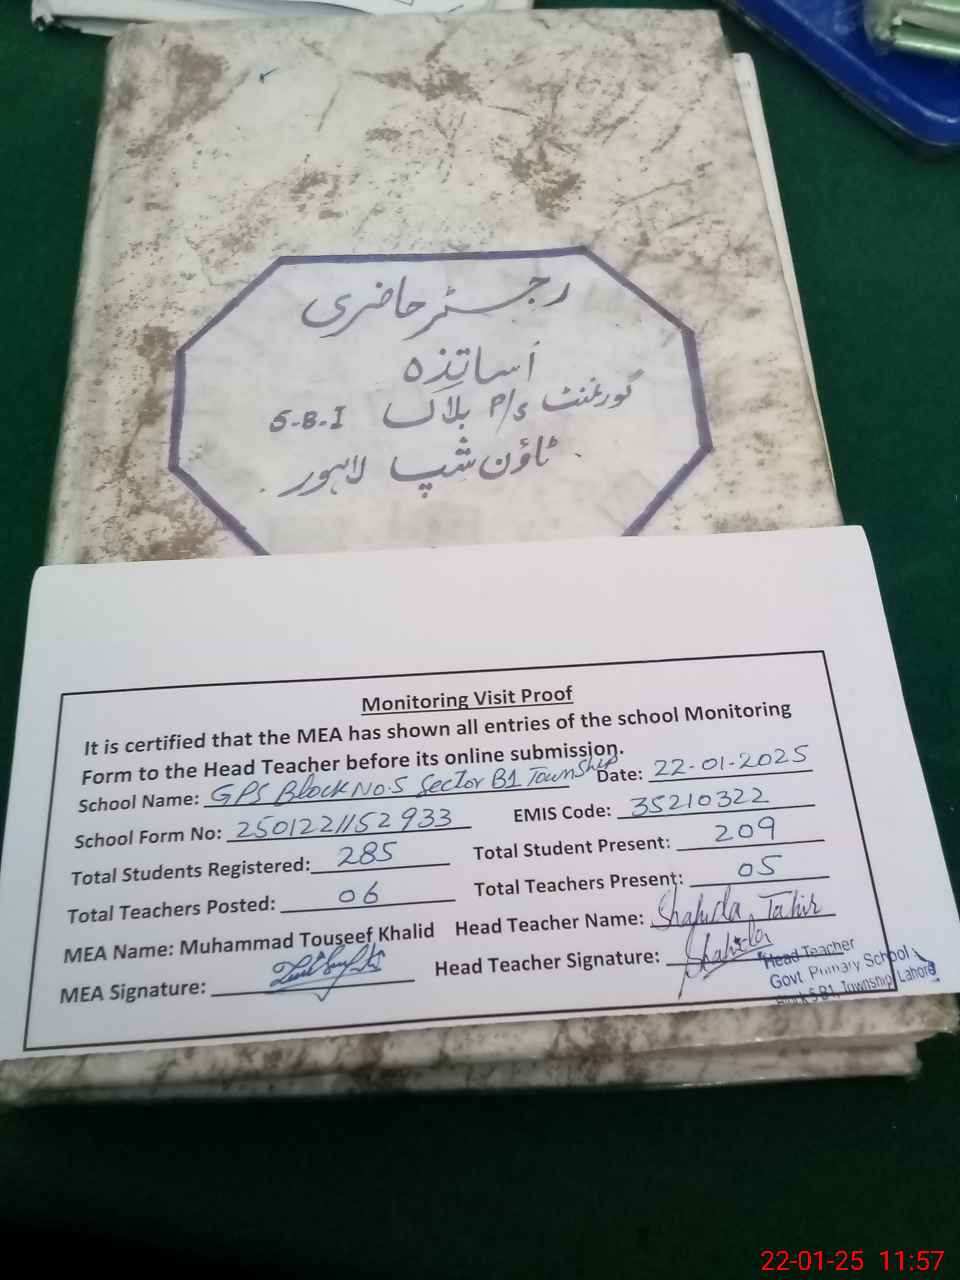 رجسٹر حاضری
اساتذہ
گورنمنٹ P/S بلاک 5-B-I
ٹاؤن شپ لاہور
Monitoring Visit Proof
It is certified that the MEA has shown all entries of the school Monitoring
Form to the Head Teacher before its online submission.
School Name: GPS Block No.5 Sector B1 Township Date: 22-01-2025
School Form No: 2501221152933 EMIS Code: 35210322
Total Students Registered: 285 Total Student Present: 209
Total Teachers Posted: 06 Total Teachers Present: 05
MEA Name: Muhammad Touseef Khalid Head Teacher Name: Shahida Tahir
MEA Signature: Head Teacher Signature: Shahida
Head Teacher
Govt Primary School
Block 5 B1, Township Lahore
22-01-25 11:57